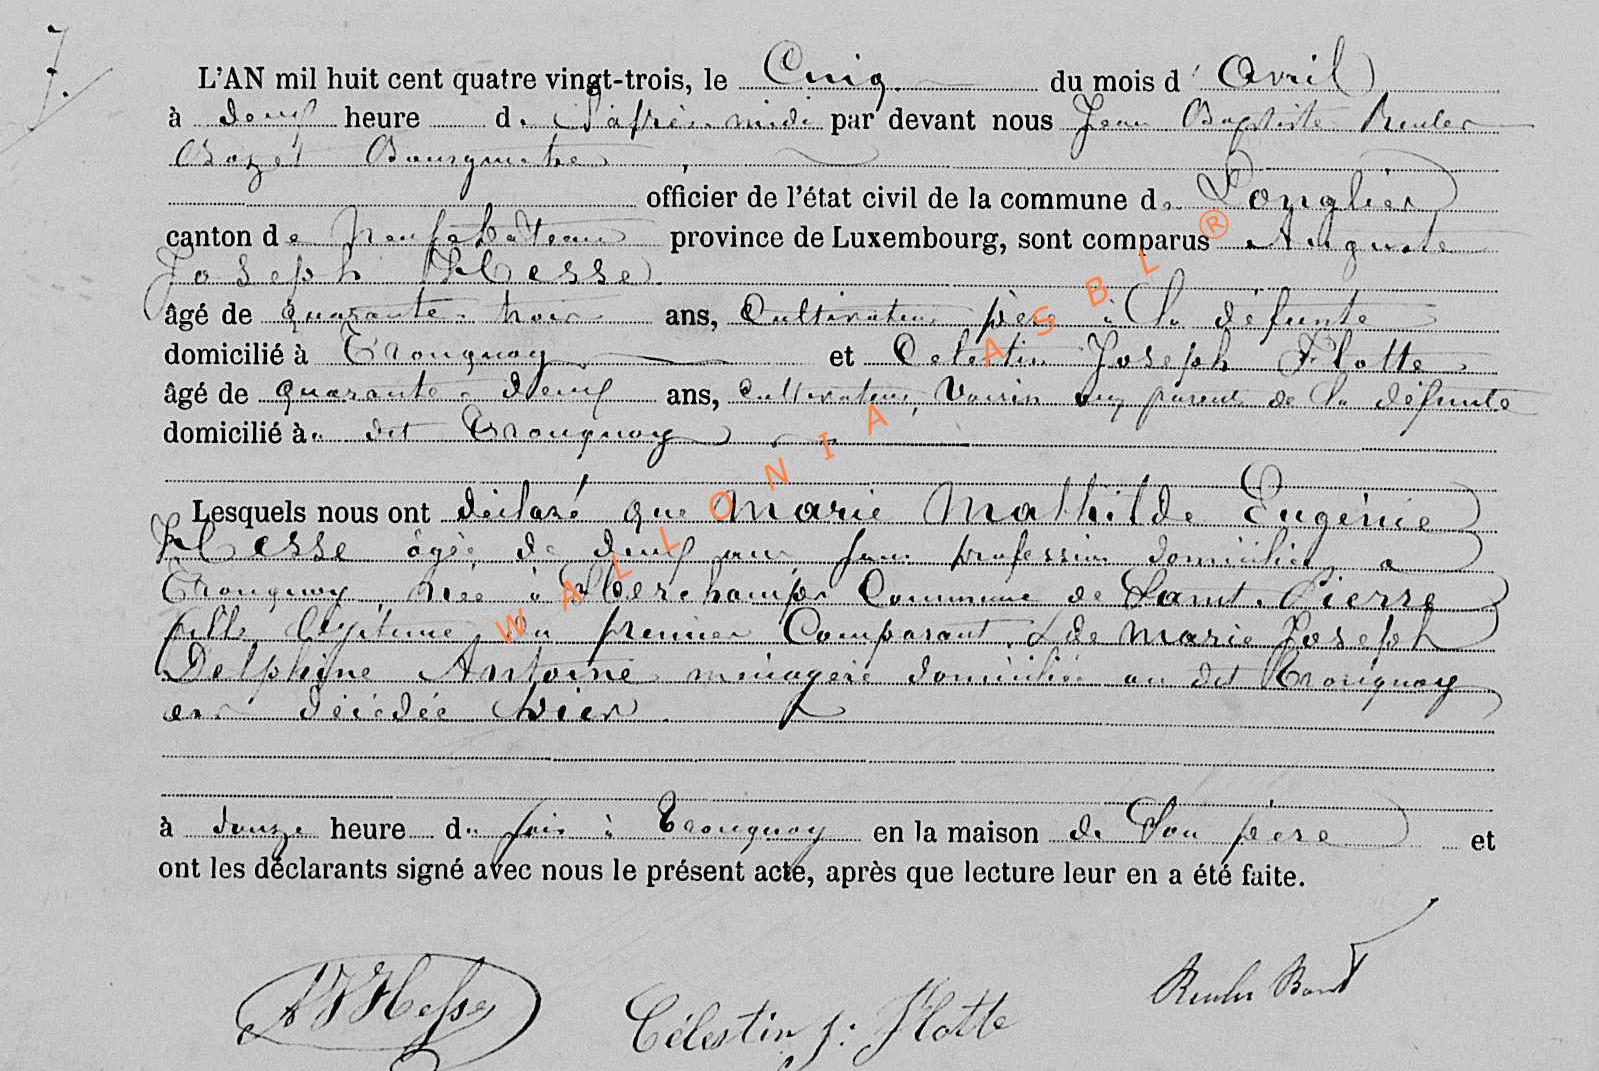 7.
L'AN mil huit cent quatre vingt-trois, le Cinq du mois d' Avril
à deux heure d. l'après midi par devant nous Jean Baptiste Reuler
Bourgmestre
officier de l'état civil de la commune de Longlier
canton de Neufchâteau province de Luxembourg, sont comparus Auguste
Joseph Hesse
âgé de quarante trois ans, Cultivateur père à la défunte
domicilié à Tronquoy et Celestin Joseph Flotte
âgé de quarante deux ans, cultivateur, Voisin aux parents de la défunte
domicilié à dit Tronquoy
Lesquels nous ont déclaré que Marie Mathilde Eugénie
Hesse âgée de deux ans sans profession domiciliée à
Tronquoy, née à Eberchamps Commune de Saint. Pierre
fille légitime du premier Comparant & de Marie Joseph
Delphine Antoine ménagère domiciliée au dit Tronquoy
est décédée hier
à douze heure du soir à Tronquoy en la maison de Son père et
ont les déclarants signé avec nous le présent acte, après que lecture leur en a été faite.
AJHesse
Célestin J: Flotte
Reuler
WALLONIA ASBL ®